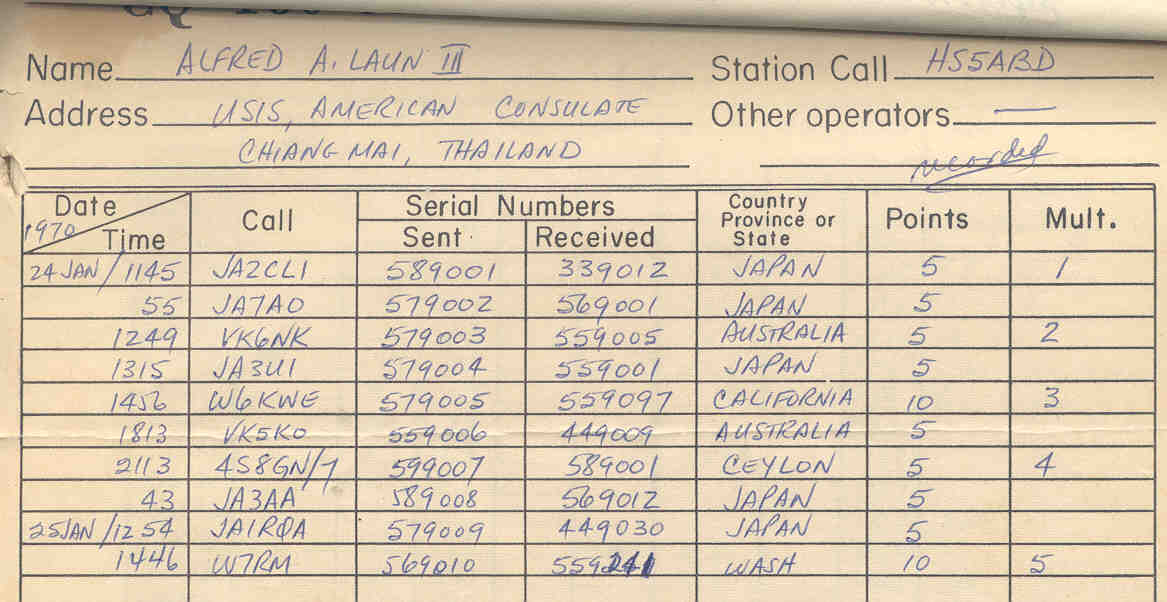 Name ALFRED A. LAUN III Station Call HS5ABD
Address USIS, AMERICAN CONSULATE Other operators —
CHIANG MAI, THAILAND recorded
Date 1970 Time Call Serial Numbers Sent Received Country Province or State Points Mult.
24 JAN/1145 JA2CL1 589001 339012 JAPAN 5 1
55 JA7AO 579002 569001 JAPAN 5
1249 VK6NK 579003 559005 AUSTRALIA 5 2
1315 JA3U1 579004 559001 JAPAN 5
1456 W6KWE 579005 559097 CALIFORNIA 10 3
1813 VK5KO 559006 449009 AUSTRALIA 5
2113 4S8GN/7 599007 589001 CEYLON 5 4
43 JA3AA 589008 569012 JAPAN 5
25JAN/1254 JA1RQA 579009 449030 JAPAN 5
1446 W7RM 569010 559241 WASH 10 5